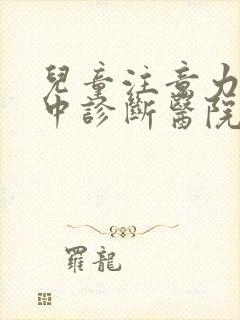 兒童注意力
中診斷醫院
羅龍